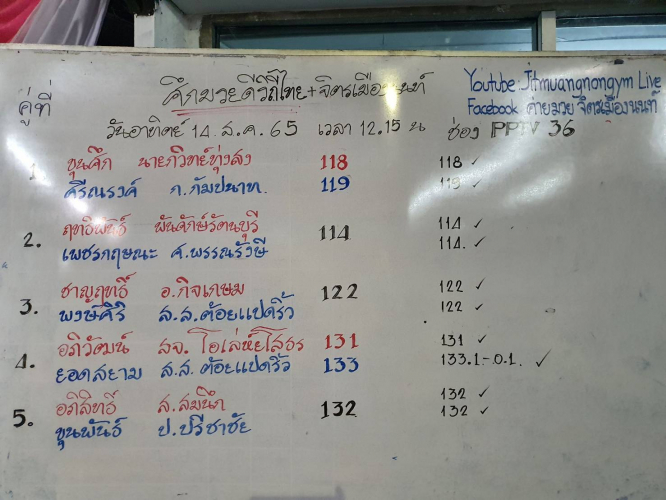 ศึกมวยดีวิถีไทย+จิตรเมืองนนท์
Youtube Jitmuangnongym Live
Facebook ค่ายมวย จิตรเมืองนนท์
คู่ที่
วันอาทิตย์ 14 ส.ค. 65 เวลา 12.15 น ช่อง PPTV 36
1. ขุนศึก นายกวิทย์ทุ่งสง 118 118 ✓
ศรีณรงค์ ก.กัมปนาท. 119 119 ✓
2. ฤทธิพันธ์ พันธักษ์รัตนบุรี 114 114 ✓
เพชรกฤษณะ ศ.พรรณรังษี 114. ✓
3. ชาญฤทธิ์ อ.กิจเกษม 122 122 ✓
พงษ์ศิริ ส.ส.ต้อยแปดริ้ว 122 ✓
4. อภิวัฒน์ สจ.โอเล่ห์ยโสธร 131 131 ✓
ยอดสยาม ส.ส.ต้อยแปดริ้ว 133 133.1-0.1. ✓
5. อภิสิทธิ์ ส.สมนึก 132 132 ✓
ขุนพันธ์ ป.ปรีชาชัย 132 ✓